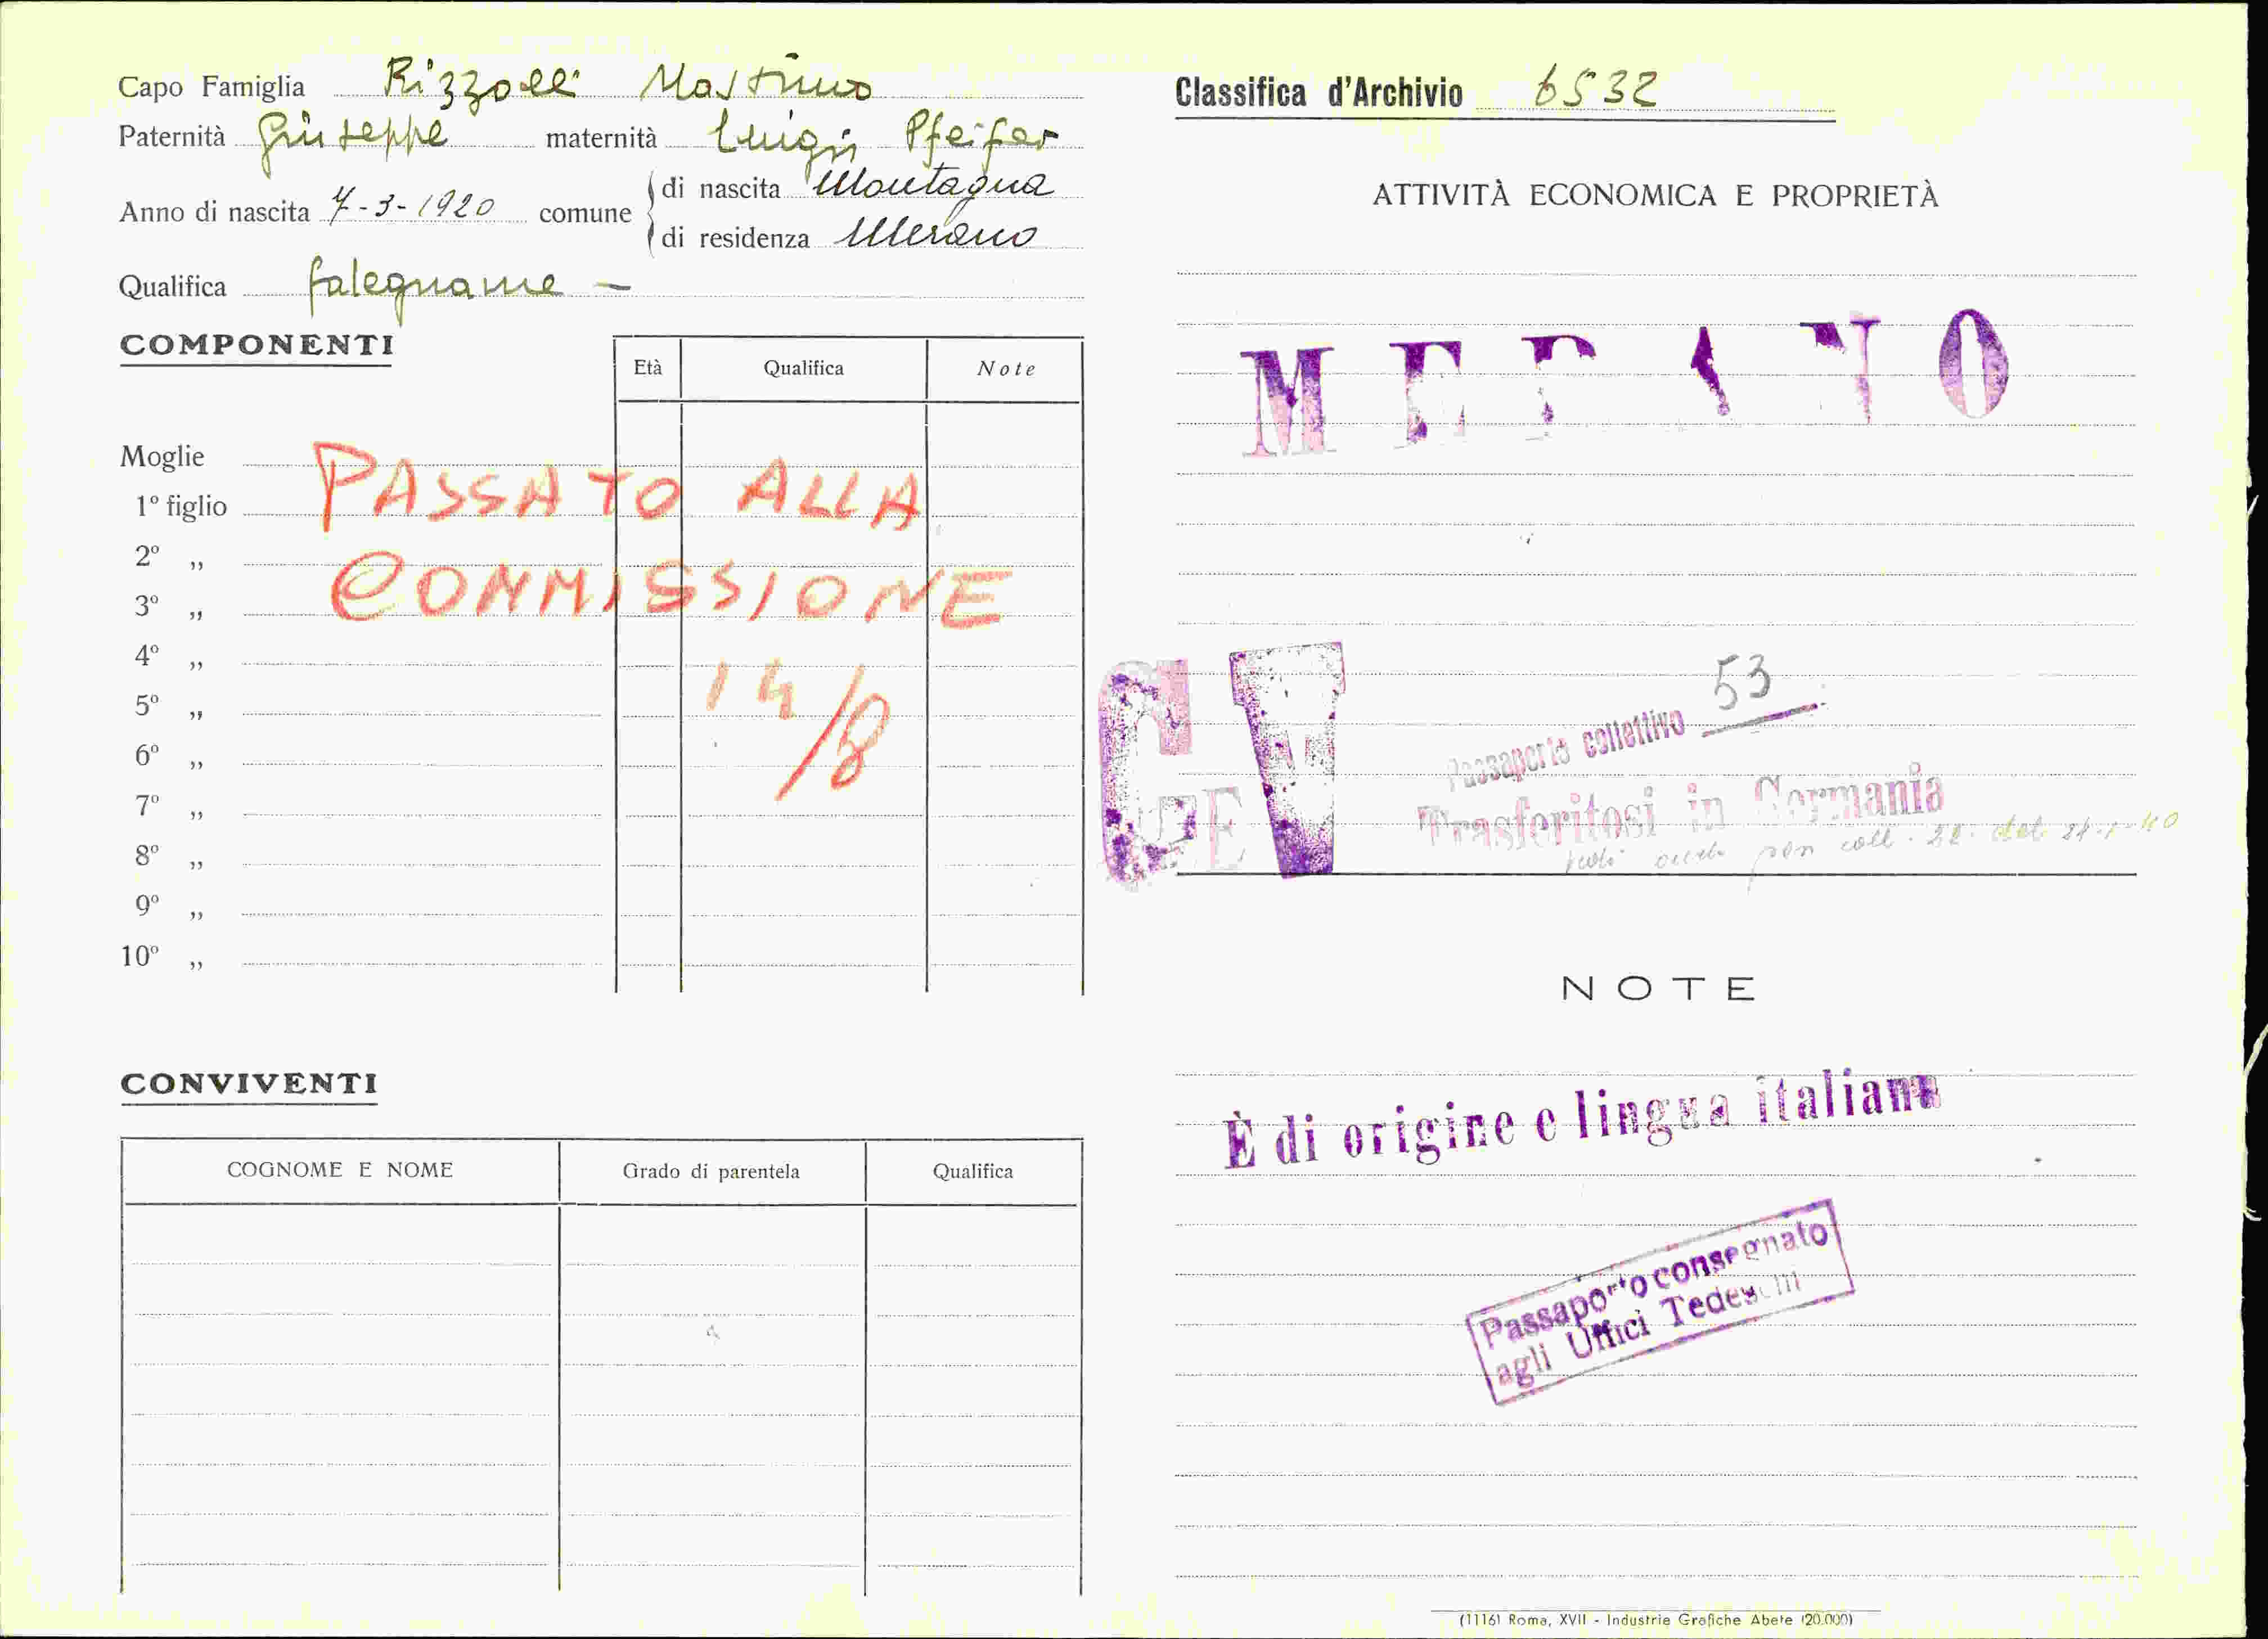 Capo Famiglia Rizzoli Massimo
Paternità Giuseppe maternità Luigia Pfeifer
Anno di nascita 7-3-1920 comune di nascita Montagna
di residenza Merano
Qualifica falegname -
COMPONENTI
Età Qualifica Note
Moglie
1º figlio
PASSATO ALLA
2º „
3º „
COMMISSIONE
4º „
5º „
14/8
6º „
7º „
8º „
9º „
10º „
CONVIVENTI
COGNOME E NOME Grado di parentela Qualifica
Classifica d'Archivio 6532
ATTIVITÀ ECONOMICA E PROPRIETÀ
MERANO
Passaporto collettivo 53
Trasferitosi in Germania
coll. 22. del
NOTE
È di origine e lingua italiana
Passaporto consegnato
agli Uffici Tedeschi
(1116) Roma, XVII - Industrie Grafiche Abete (20.000)